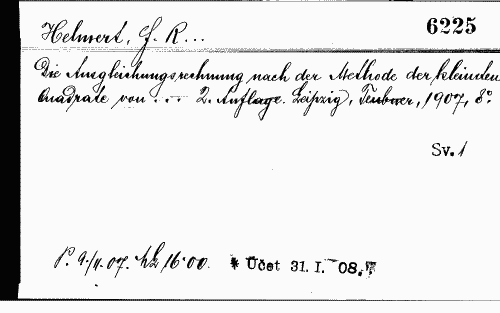 Helmert, F. R...
6225
Die Ausgleichungsrechnung nach der Methode der kleinsten
Quadrate von... 2. Auflage. Leipzig, Teubner, 1907, 8°.
Sv. 1
P. 9./11. 07. 16·00. * Účet 31. I. 08.